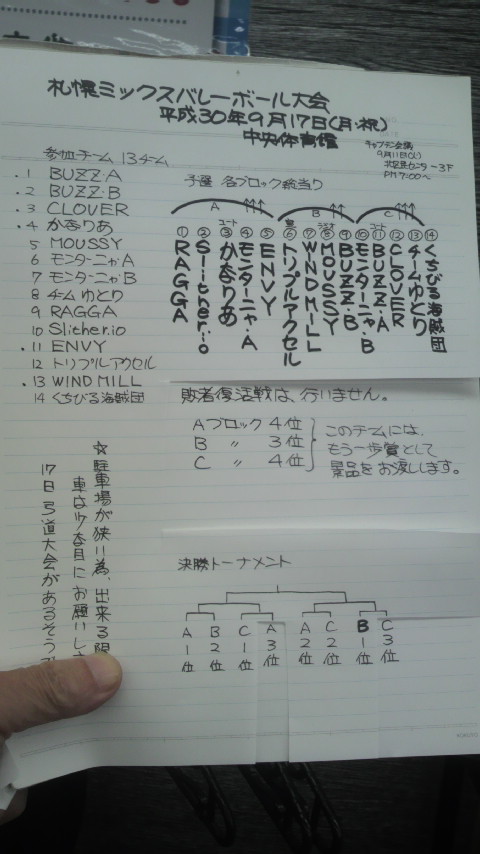 札幌ミックスバレーボール大会
平成30年9月17日(月・祝)
中央体育館
キャプテン会議
9月11日(火)
北区民センター3F
PM7:00〜
参加チーム 13チーム
. 1 BUZZ・A
. 2 BUZZ・B
3 CLOVER
. 4 かなりあ
5 MOUSSY
6 モンターニャ・A
7 モンターニャ・B
8 チームゆとり
9 RAGGA
10 Slither.io
. 11 ENVY
12 トリプルアクセル
. 13 WIND MILL
14 くちびる海賊団
予選 各ブロック総当り
A B C
コート コート
① RAGGA
② Slither.io
③ かなりあ
④ モンターニャ・A
⑤ ENVY
⑥ トリプルアクセル
⑦ WINDMILL
⑧ MOUSSY
⑨ BUZZ・B
⑩ モンターニャ・B
⑪ BUZZ・A
⑫ CLOVER
⑬ チームゆとり
⑭ くちびる海賊団
敗者復活戦は、行いません。
Aブロック 4位
B 〃 3位
C 〃 4位
このチームには、
もう一歩賞として
景品をお渡しします。
☆駐車場が狭い為、出来る限
車は少な目にお願いし
17日弓道大会があるそうで
決勝トーナメント
A1位 B2位 C1位 A3位 A2位 C2位 B1位 C3位